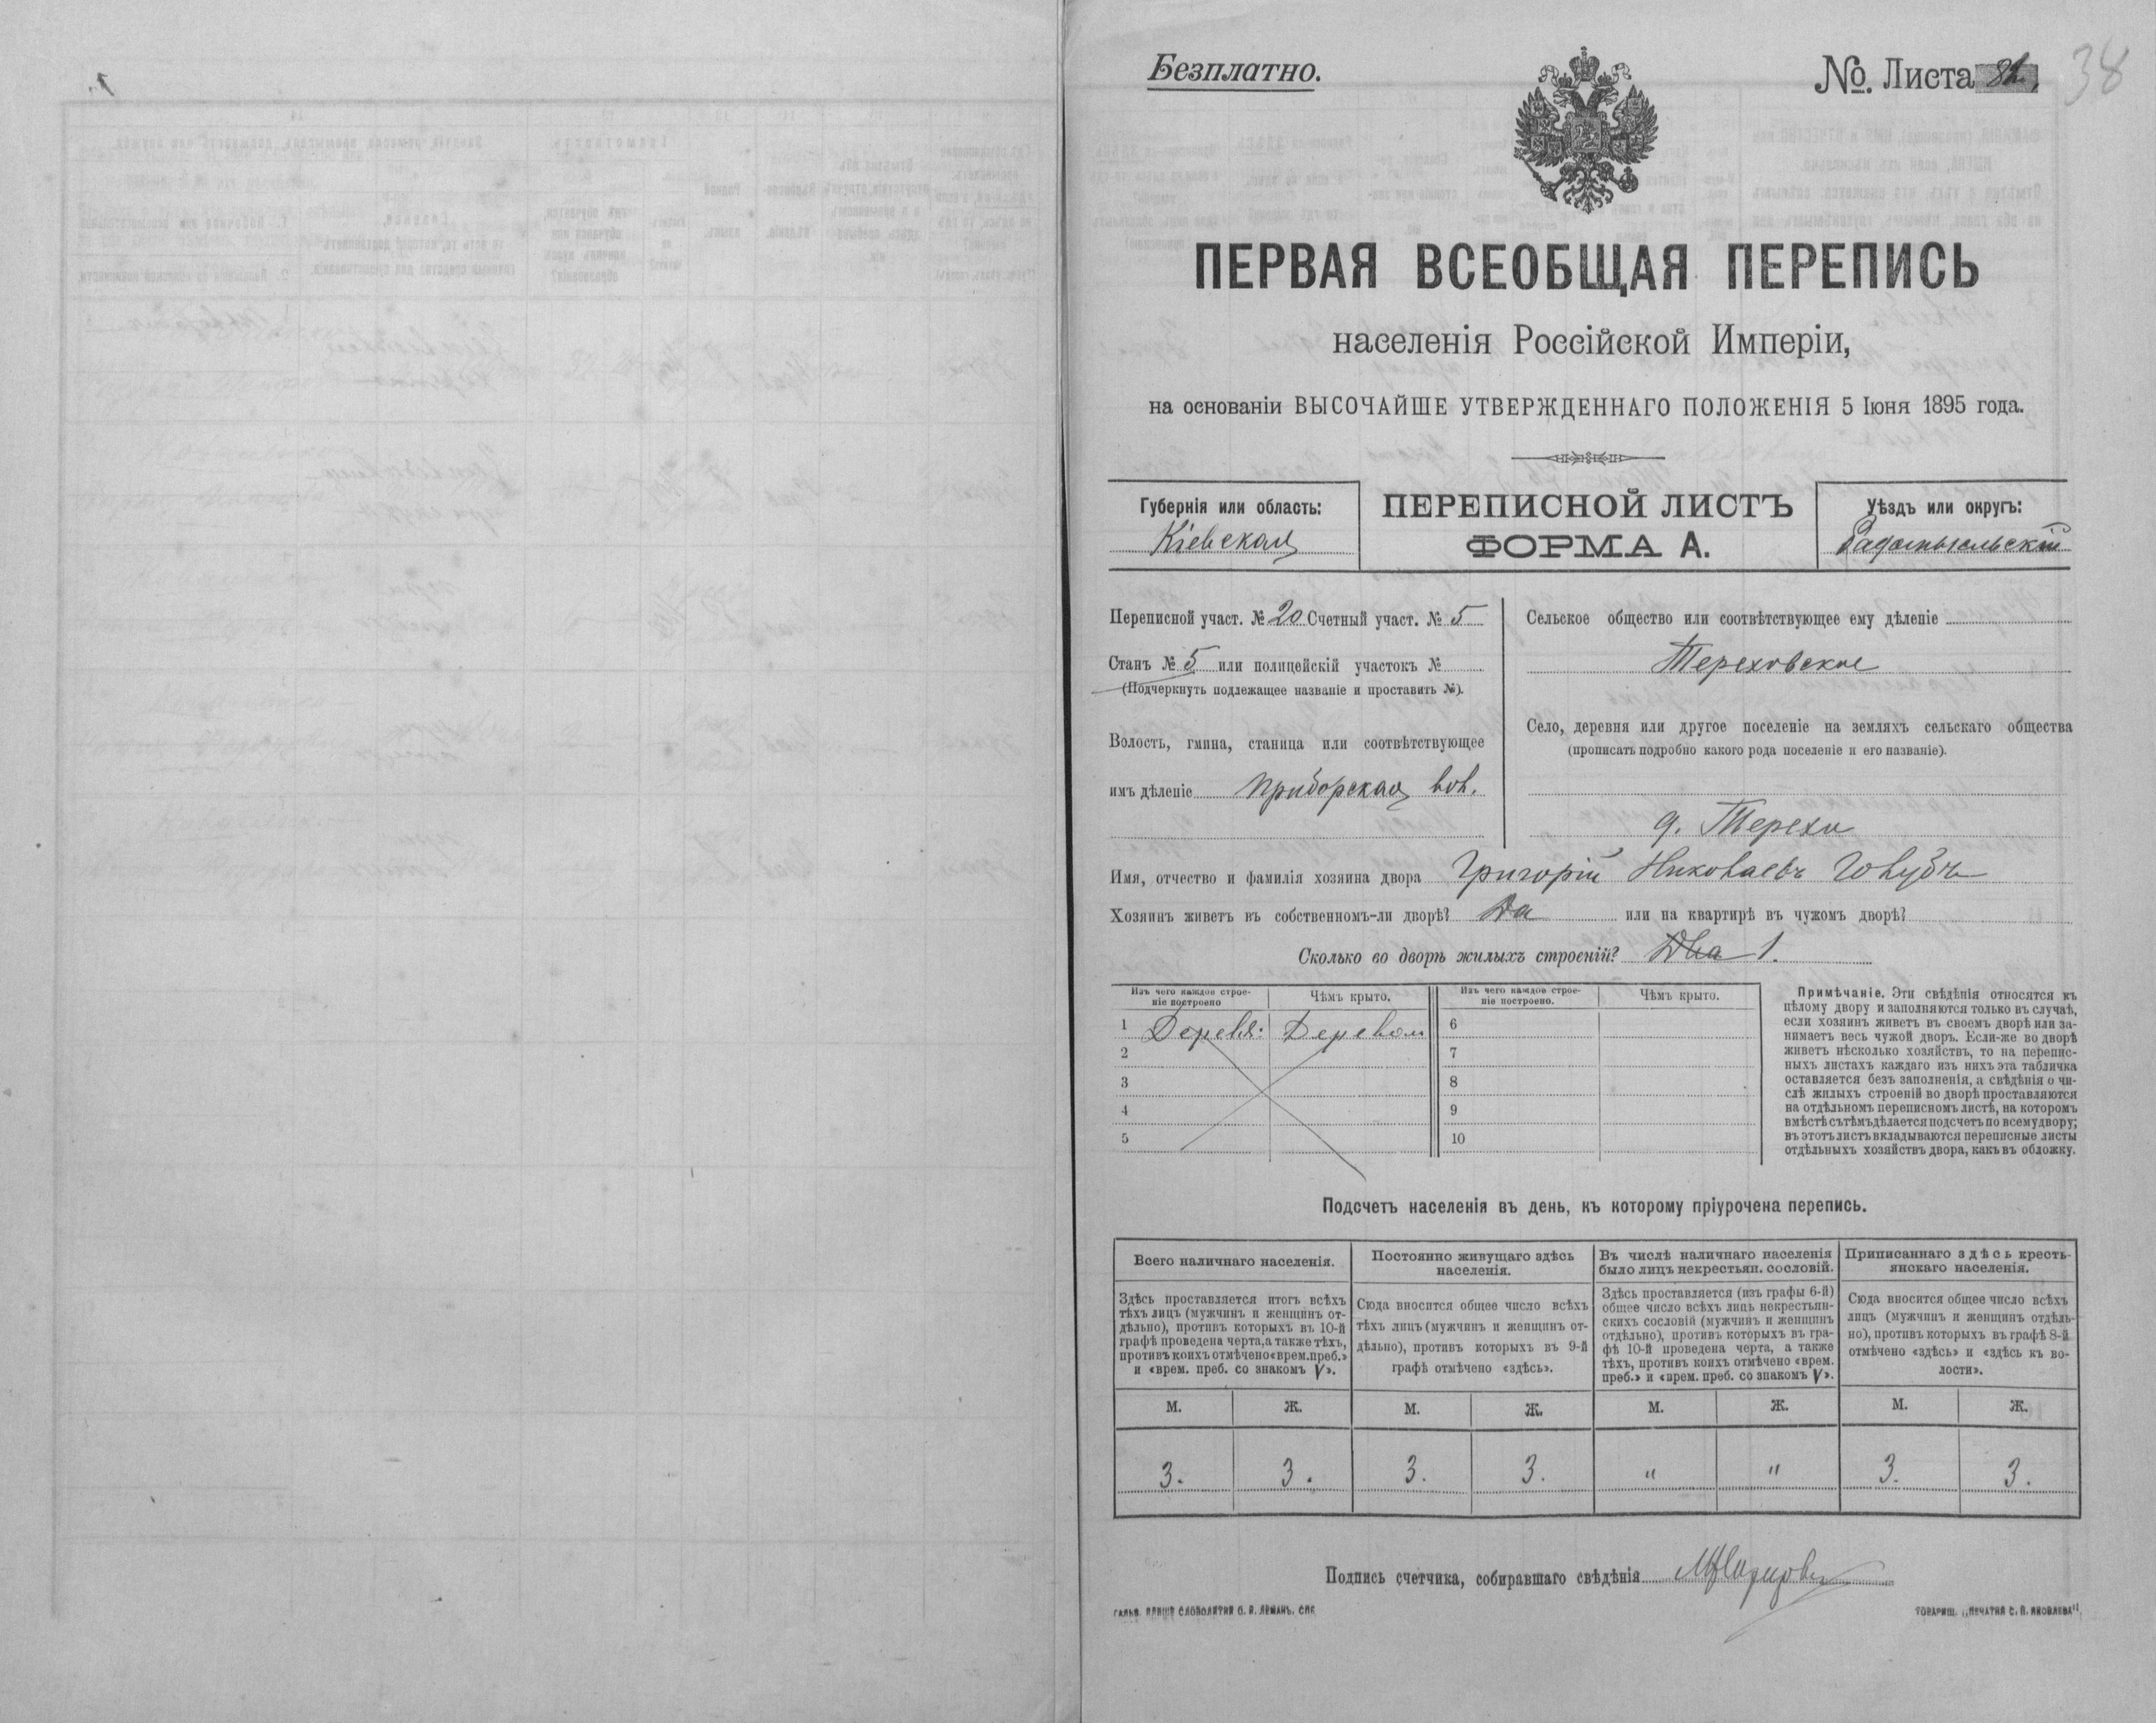 Безплатно.
№. Листа
38
ПЕРВАЯ ВСЕОБЩАЯ ПЕРЕПИСЬ
населенія Россійской Имперіи,
на основаніи ВЫСОЧАЙШЕ УТВЕРЖДЕННАГО ПОЛОЖЕНІЯ 5 Іюня 1895 года.
Губернія или область:
Кіевская
ПЕРЕПИСНОЙ ЛИСТЪ
ФОРМА А.
Уѣздъ или округъ:
Радомысльскій
Переписной участ. № 20 Счетный участ. № 5
Станъ № 5 или полицейскій участокъ №
(Подчеркнуть подлежащее названіе и проставить №).
Волость, гмина, станица или соотвѣтствующее
имъ дѣленіе Приборская вол.
Сельское общество или соотвѣтствующее ему дѣленіе
Тереховское
Село, деревня или другое поселеніе на земляхъ сельскаго общества
(прописать подробно какого рода поселеніе и его названіе).
д. Терехи
Имя, отчество и фамилія хозяина двора Григорій Николаевъ Голубъ
Хозяинъ живетъ въ собственномъ-ли дворѣ? Да или на квартирѣ въ чужомъ дворѣ?
Сколько во дворѣ жилыхъ строеній? Два 1.
Изъ чего каждое строе-
ніе построено
Чѣмъ крыто.
Изъ чего каждое строе-
ніе построено.
Чѣмъ крыто.
1 Деревя: Деревом 6
2 7
3 8
4 9
5 10
Примѣчаніе. Эти свѣдѣнія относятся къ
цѣлому двору и заполняются только въ случаѣ,
если хозяинъ живетъ въ своемъ дворѣ или за-
нимаетъ весь чужой дворъ. Если-же во дворѣ
живетъ нѣсколько хозяйствъ, то на перепис-
ныхъ листахъ каждаго изъ нихъ эта табличка
оставляется безъ заполненія, а свѣдѣнія о чи-
слѣ жилыхъ строеній во дворѣ проставляются
на отдѣльномъ переписномъ листѣ, на которомъ
вмѣстѣ съ тѣмъ дѣлается подсчетъ по всему двору;
въ этотъ листъ вкладываются переписные листы
отдѣльныхъ хозяйствъ двора, какъ въ обложку.
Подсчетъ населенія въ день, къ которому пріурочена перепись.
Всего наличнаго населенія.
Здѣсь проставляется итогъ всѣхъ
тѣхъ лицъ (мужчинъ и женщинъ от-
дѣльно), противъ которыхъ въ 10-й
графѣ проведена черта, а также тѣхъ,
противъ коихъ отмѣчено «врем. преб.»
и «врем. преб. со знакомъ V».
Постоянно живущаго здѣсь
населенія.
Сюда вносится общее число всѣхъ
тѣхъ лицъ (мужчинъ и женщинъ от-
дѣльно), противъ которыхъ въ 9-й
графѣ отмѣчено «здѣсь».
Въ числѣ наличнаго населенія
было лицъ некрестьян. сословій.
Здѣсь проставляется (изъ графы 6-й)
общее число всѣхъ лицъ некрестьян-
скихъ сословій (мужчинъ и женщинъ
отдѣльно), противъ которыхъ въ гра-
фѣ 10-й проведена черта, а также
тѣхъ, противъ коихъ отмѣчено «врем.
преб.» и «врем. преб. со знакомъ V».
Приписаннаго здѣсь кресть-
янскаго населенія.
Сюда вносится общее число всѣхъ
лицъ (мужчинъ и женщинъ отдѣль-
но), противъ которыхъ въ графѣ 8-й
отмѣчено «здѣсь» и «здѣсь къ во-
лости».
М. Ж. М. Ж. М. Ж. М. Ж.
3. 3. 3. 3. " " 3. 3.
Подпись счетчика, собиравшаго свѣдѣнія
ТОВАРИЩ. „ПЕЧАТНЯ С. П. ЯКОВЛЕВА"